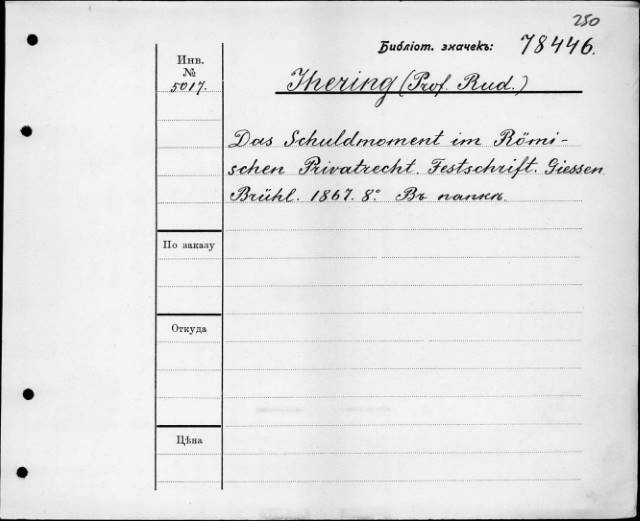 250
Библіот. значекъ: 78446.
Инв.
№
5017.
Jhering (Prof. Rud.)
Das Schuldmoment im Römi-
schen Privatrecht. Festschrift. Giessen
Brühl. 1867. 8° Въ папкѣ.
По заказу
Откуда
Цѣна